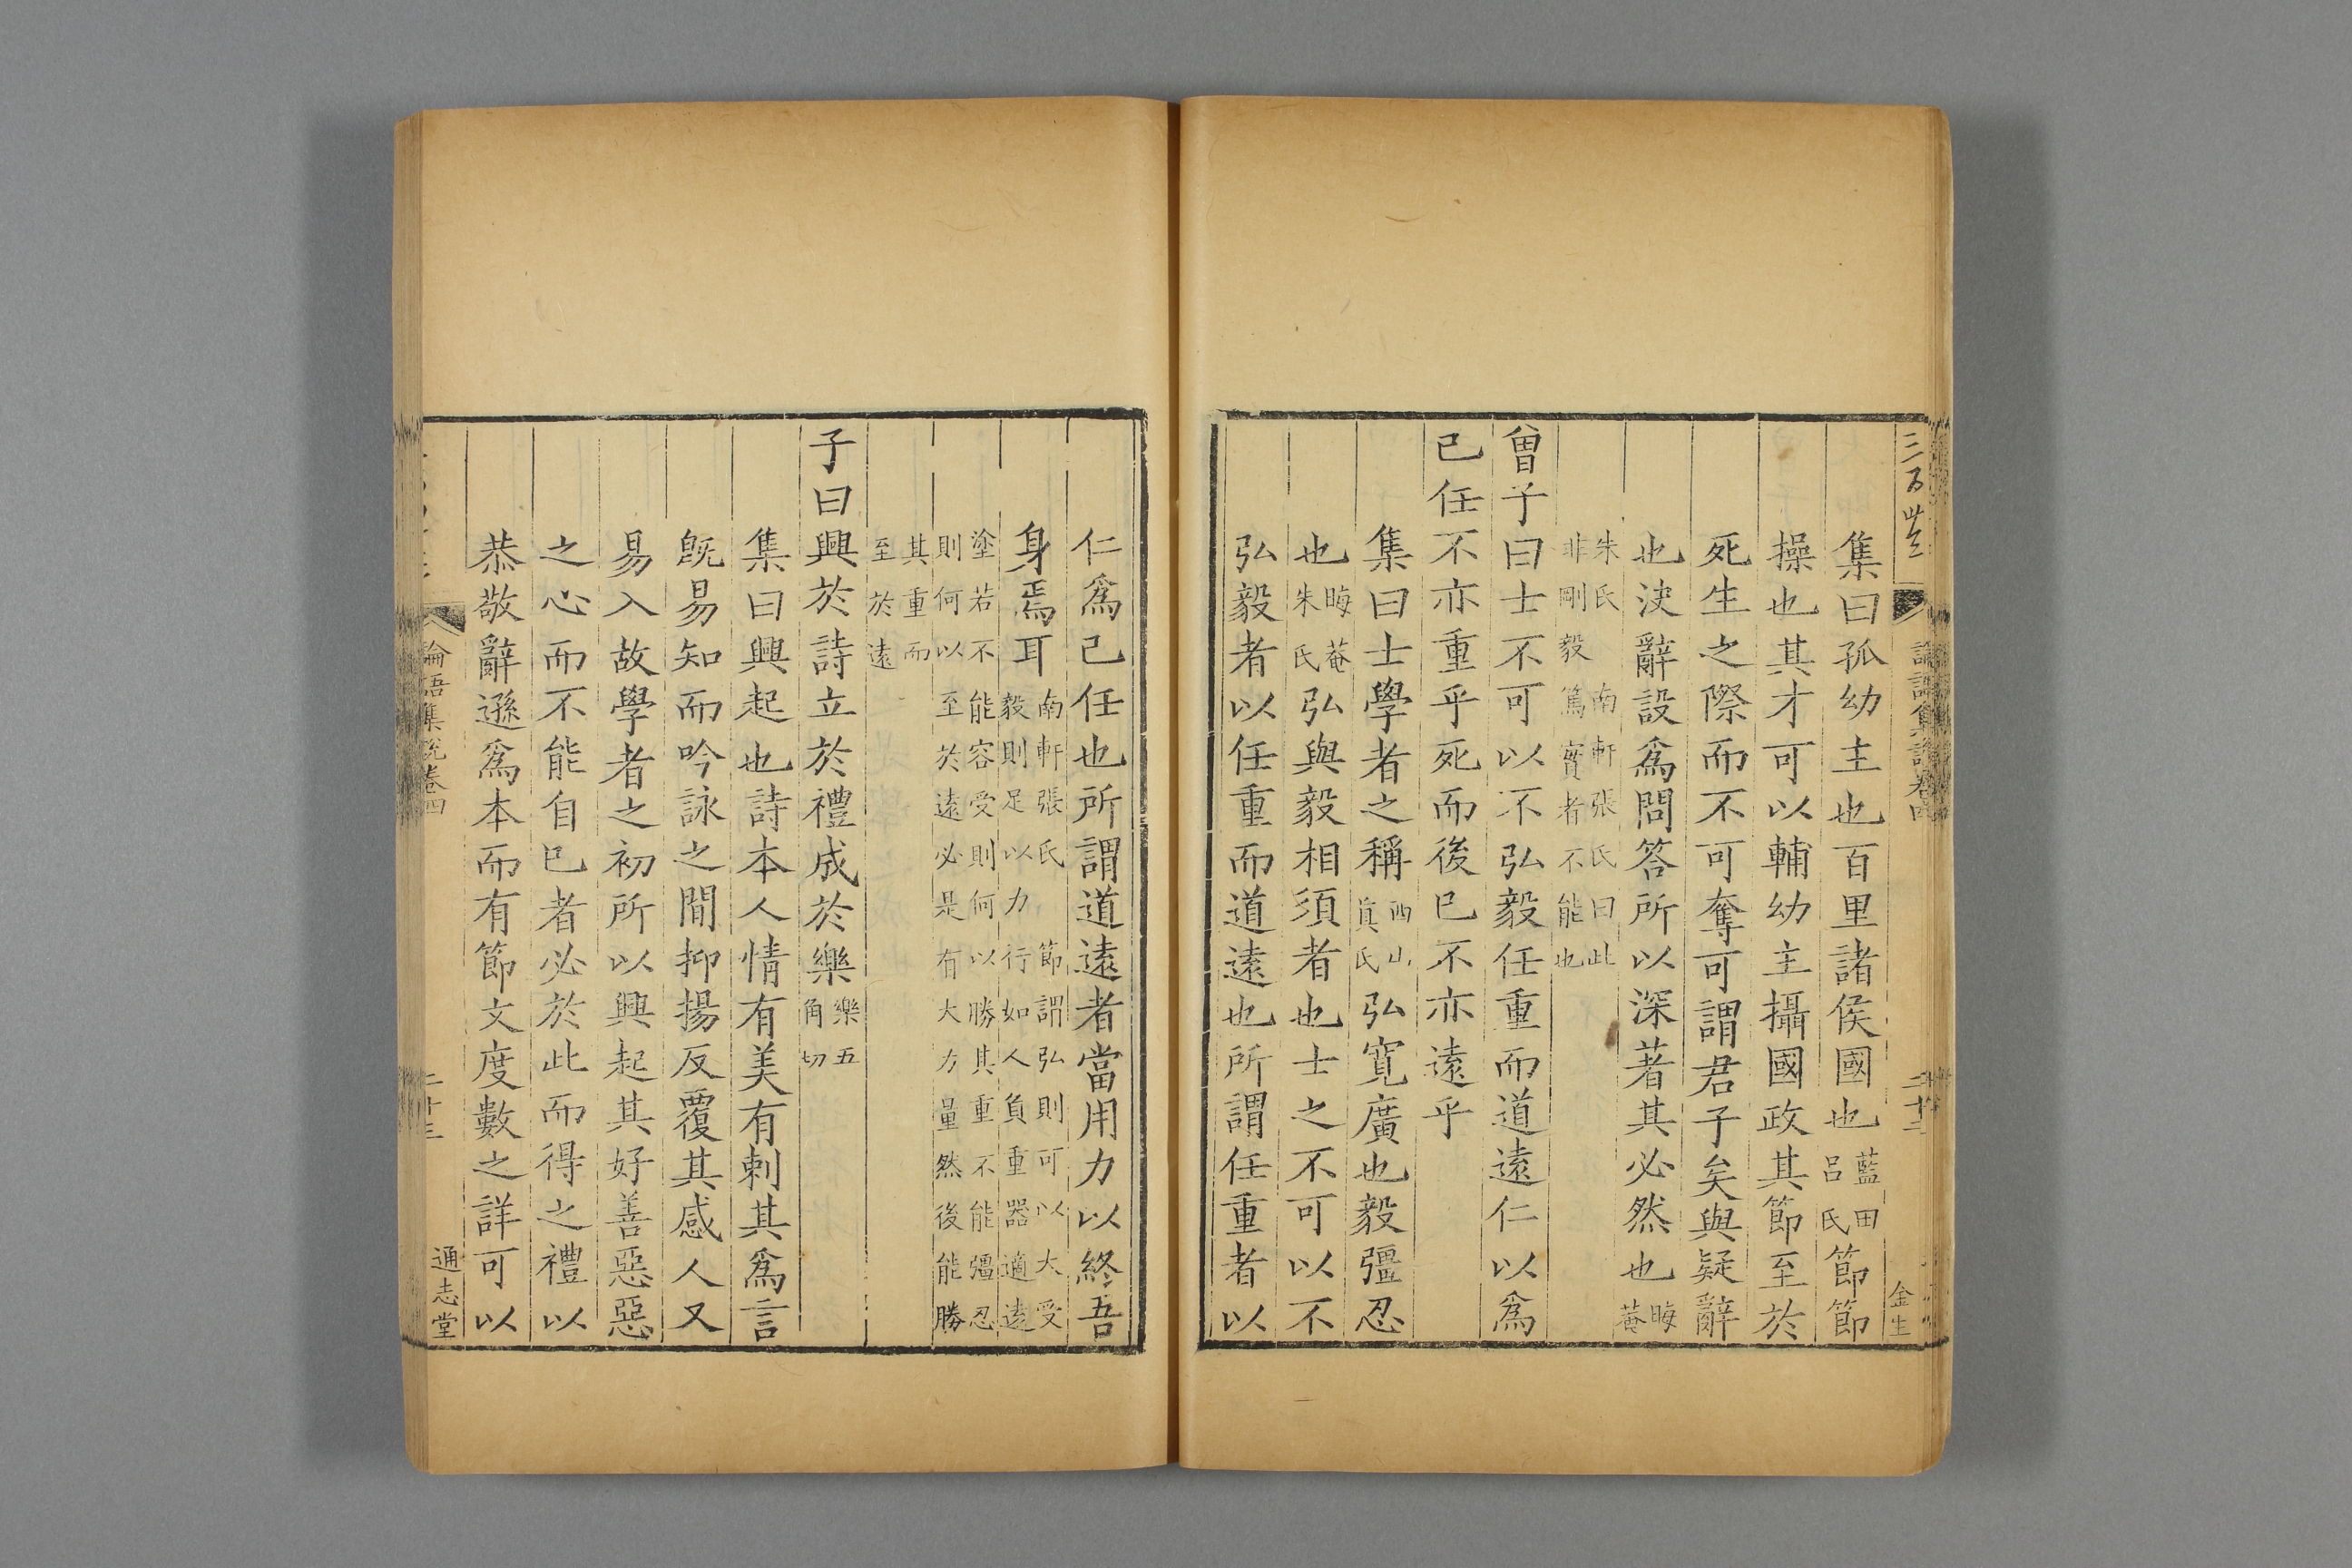 三百廿三
論語集說卷四
二十二
金生
集曰孤幼主也百里諸侯國也藍田呂氏節節
操也其才可以輔幼主攝國政其節至於
死生之際而不可奪可謂君子矣與疑辭
也決辭設爲問答所以深著其必然也晦菴
朱氏 南軒張氏曰此
非剛毅篤實者不能也
曾子曰士不可以不弘毅任重而道遠仁以爲
已任不亦重乎死而後已不亦遠乎
集曰士學者之稱西山眞氏弘寬廣也毅彊忍
也晦菴朱氏弘與毅相須者也士之不可以不
弘毅者以任重而道遠也所謂任重者以
仁爲己任也所謂道遠者當用力以終吾
身焉耳南軒張氏 節謂弘則可以大受
毅則足以力行如人負重器適遠
塗若不能容受則何以勝其重不能彊忍
則何以至於遠必是有大力量然後能勝
其重而
至於遠
子曰興於詩立於禮成於樂樂五角切
集曰興起也詩本人情有美有刺其爲言
旣易知而吟詠之間抑揚反覆其感人又
易入故學者之初所以興起其好善惡惡
之心而不能自已者必於此而得之禮以
恭敬辭遜爲本而有節文度數之詳可以
論語集說卷四
二十三
通志堂